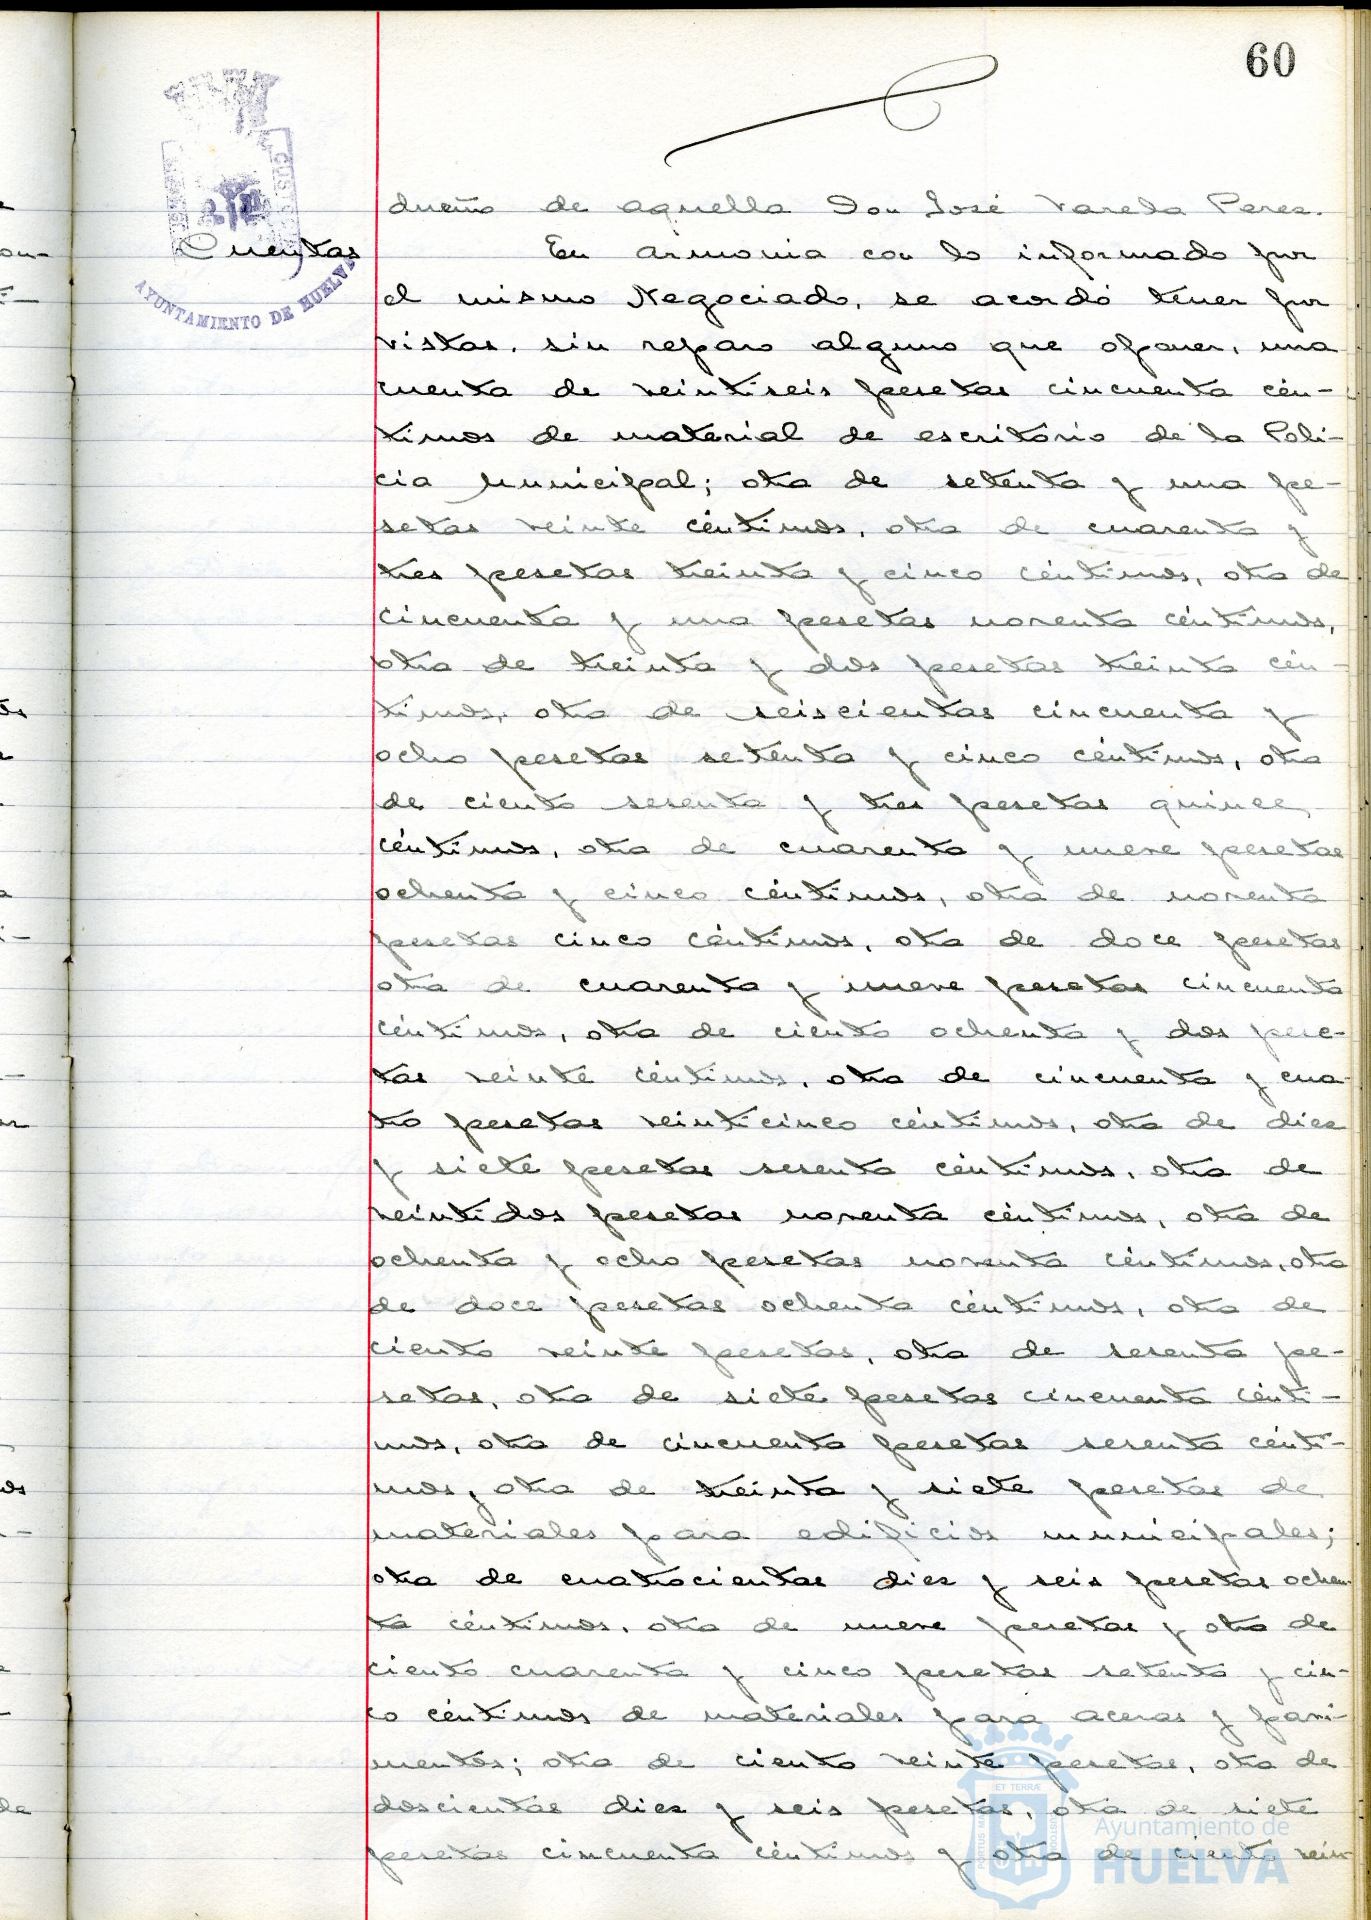 60
dueño de aquella Don José Varela Perez.
Cuentas
En armonia con lo informado por
el mismo Negociado, se acordó tener por
vistas, sin reparo alguno que oponer, una
cuenta de veintiseis pesetas cincuenta cén-
timos de material de escritorio de la Poli-
cia Municipal; otra de setenta y una pe-
setas veinte céntimos, otra de cuarenta y
tres pesetas treinta y cinco céntimos, otra de
cincuenta y una pesetas noventa céntimos,
otra de treinta y dos pesetas treinta cén-
timos, otra de seiscientas cincuenta y
ocho pesetas setenta y cinco céntimos, otra
de ciento sesenta y tres pesetas quince
céntimos, otra de cuarenta y nueve pesetas
ochenta y cinco céntimos, otra de noventa
pesetas cinco céntimos, otra de doce pesetas
otra de cuarenta y nueve pesetas cincuenta
céntimos, otra de ciento ochenta y dos pese-
tas veinte céntimos, otra de cincuenta y cua-
tro pesetas veinticinco céntimos, otra de diez
y siete pesetas sesenta céntimos, otra de
veintidos pesetas noventa céntimos, otra de
ochenta y ocho pesetas noventa céntimos, otra
de doce pesetas ochenta céntimos, otra de
ciento veinte pesetas, otra de sesenta pe-
setas, otra de siete pesetas cincuenta cénti-
mos, otra de cincuenta pesetas sesenta cénti-
mos, y otra de treinta y siete pesetas de
materiales para edificios municipales;
otra de cuatrocientas diez y seis pesetas ochen-
ta céntimos, otra de nueve pesetas y otra de
ciento cuarenta y cinco pesetas setenta y cin-
co céntimos de materiales para aceras y pavi-
mentos; otra de ciento veinte pesetas, otra de
doscientas diez y seis pesetas, otra de siete
pesetas cincuenta céntimos y otra de ciento vein-
AYUNTAMIENTO DE HUELVA
Ayuntamiento de
HUELVA